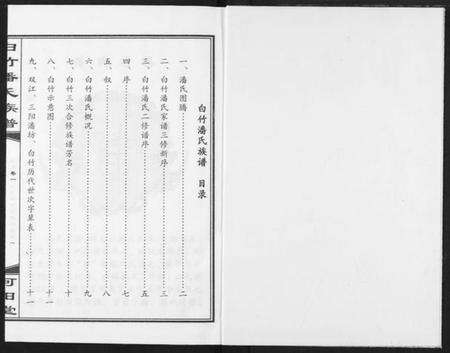 白竹潘氏族谱 目录
一、潘氏图腾……二
二、白竹潘氏家谱三修新序……三
三、白竹潘氏二修谱序……五
四、序……七
五、叙……八
六、白竹潘氏概况……九
七、白竹三次合修族谱芳名……十
八、白竹示意图……十一
九、双江、三阳潘坊、白竹历代世次字辈表……十一
白竹潘氏族谱
卷一